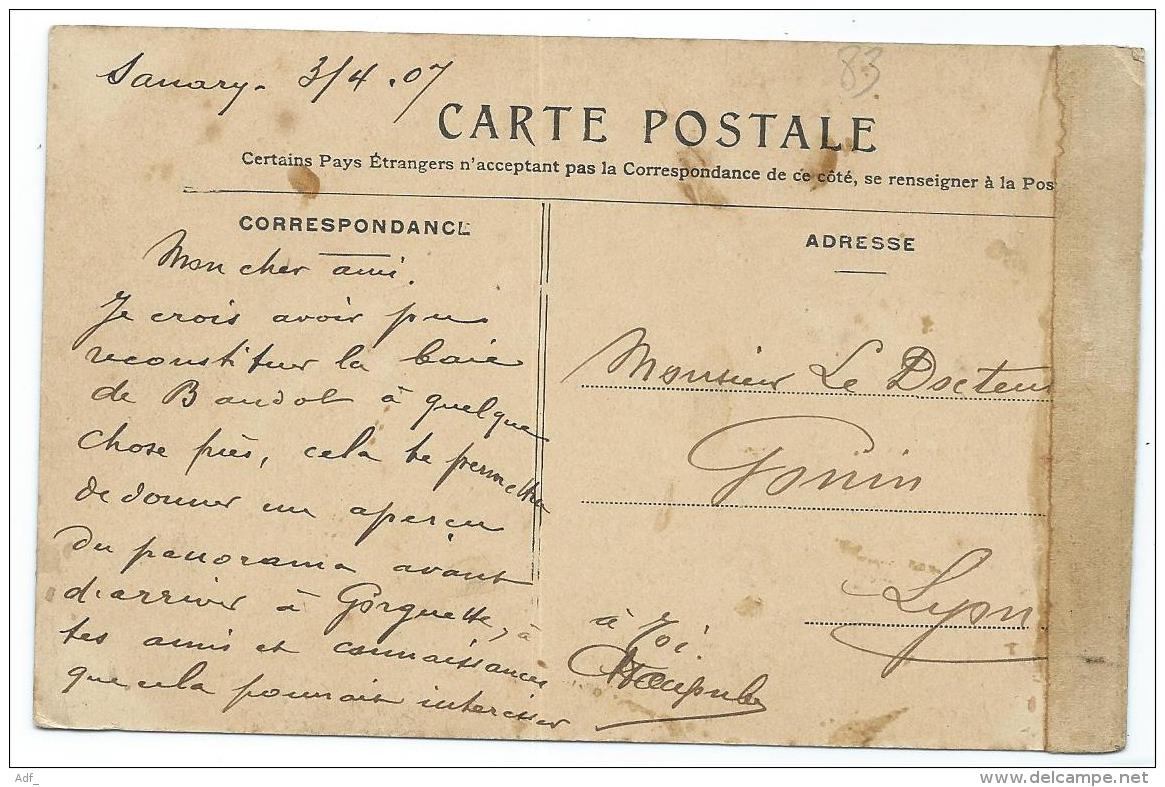 Sanary. 3/4.07
83
CARTE POSTALE
Certains Pays Étrangers n'acceptant pas la Correspondance de ce côté, se renseigner à la Pos
CORRESPONDANCE
ADRESSE
Mon cher ami.
Je crois avoir pu
reconstituer la baie
de Bandol à quelque
chose près, cela te permettra
de donner un aperçu
du panorama avant
d'arriver à Gorguette, à
tes amis et connaissances
que cela pourrait intéresser
à Toi.
Monsieur Le Docteur
Gonin
Lyon
Adf_
delcampe.net